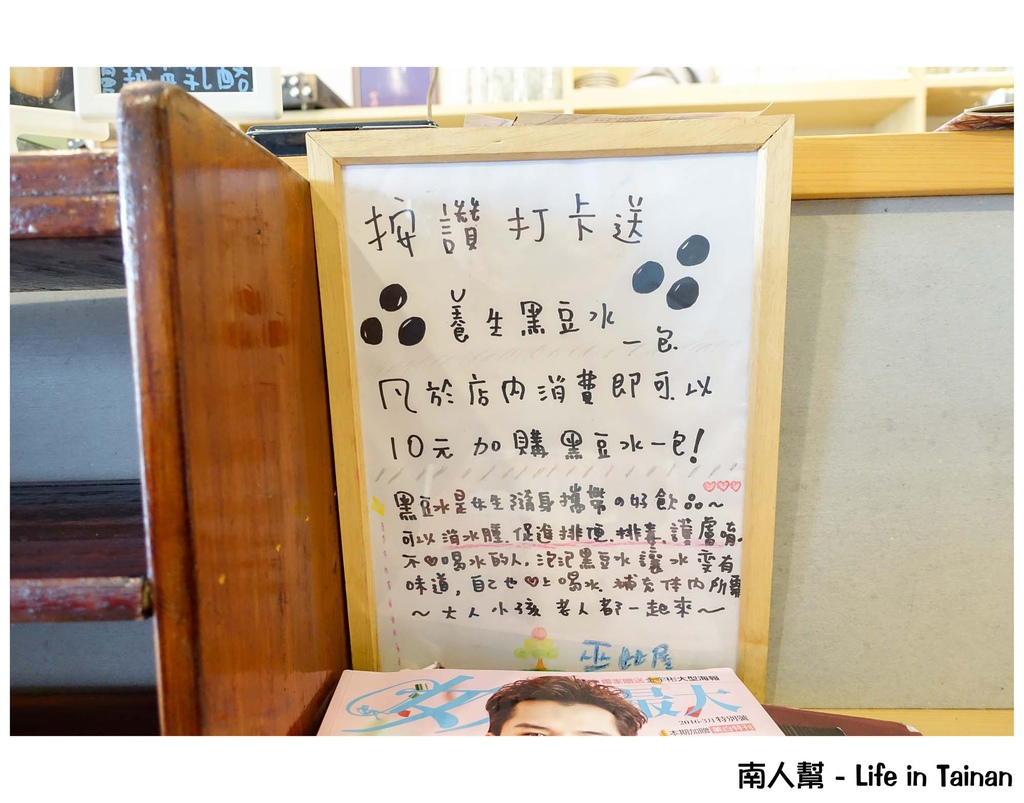 按讚打卡送
養生黑豆水
一包.
凡於店內消費即可以
10元加購黑豆水一包!
黑豆水是女生隨身攜帶の好飲品~
可以消水腫.促進排便.排毒.護膚唷.
不♥喝水的人,泡泡黑豆水讓水變有
味道,自己也♥上喝水.補充体內所需
~大人小孩老人都一起來~
巫 屋
女 最大
2016·3月特別號
本期加贈
南人幫 - Life in Tainan